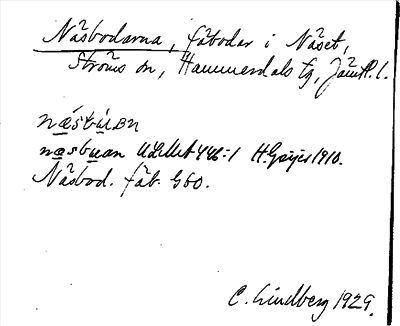 Näsbodarna, fäbodar i Näset,
Ströms sn, Hammerdals tg, Jämtl. l.
næ´sbu̠ɒn
næsbuan ULMA 446:1 H. Geijer 1910.
Näsbod. fäb. Gbo.
C. Lindberg 1929.